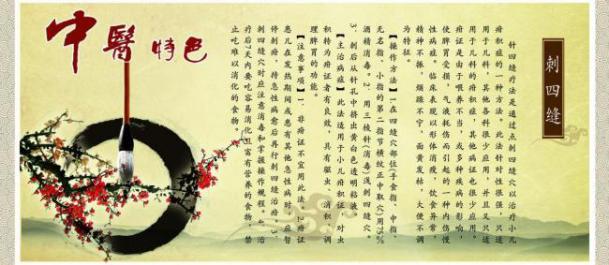 中醫特色
刺四缝
针四缝疗法是通过点刺四缝穴以治疗小儿
疳积症的一种方法。此法针对性很强,只适
用于儿科,其他各科很少应用,并且又只适
用于儿科的疳积症,其他病证也很少应用。
疳证是由于喂养不当,或多种疾病的影响,
使脾胃受损,气液耗伤而引起的一种内伤慢
性病症。临床表现以形体消瘦,饮食异常,
精神不振,烦躁不宁,面黄发枯,大便不调
为特征。
【操作方法】1、在四缝穴部位(手食指、中指、
无名指、小指的第二指节横纹正中取穴)用75%
酒精消毒。2、用三棱针(消毒)浅刺四缝穴。
3、刺后从针孔中挤出黄白色透明粘液。
【主治病症】此法适用于小儿疳积证,对虫
积转为疳证者有良效,具有驱虫、消积、调
理脾胃的功能。
【注意事项】1、非疳证不宜用此法。2、疳证
患儿在发热期间或患有其他急性病时,应暂
停刺疳,待急性病愈后再行刺四缝治疳。3、
刺四缝穴时应注意消毒和掌握操作规程。4、治
疗后7天内要吃容易消化且富有营养的食物,禁
止吃难以消化的食物。